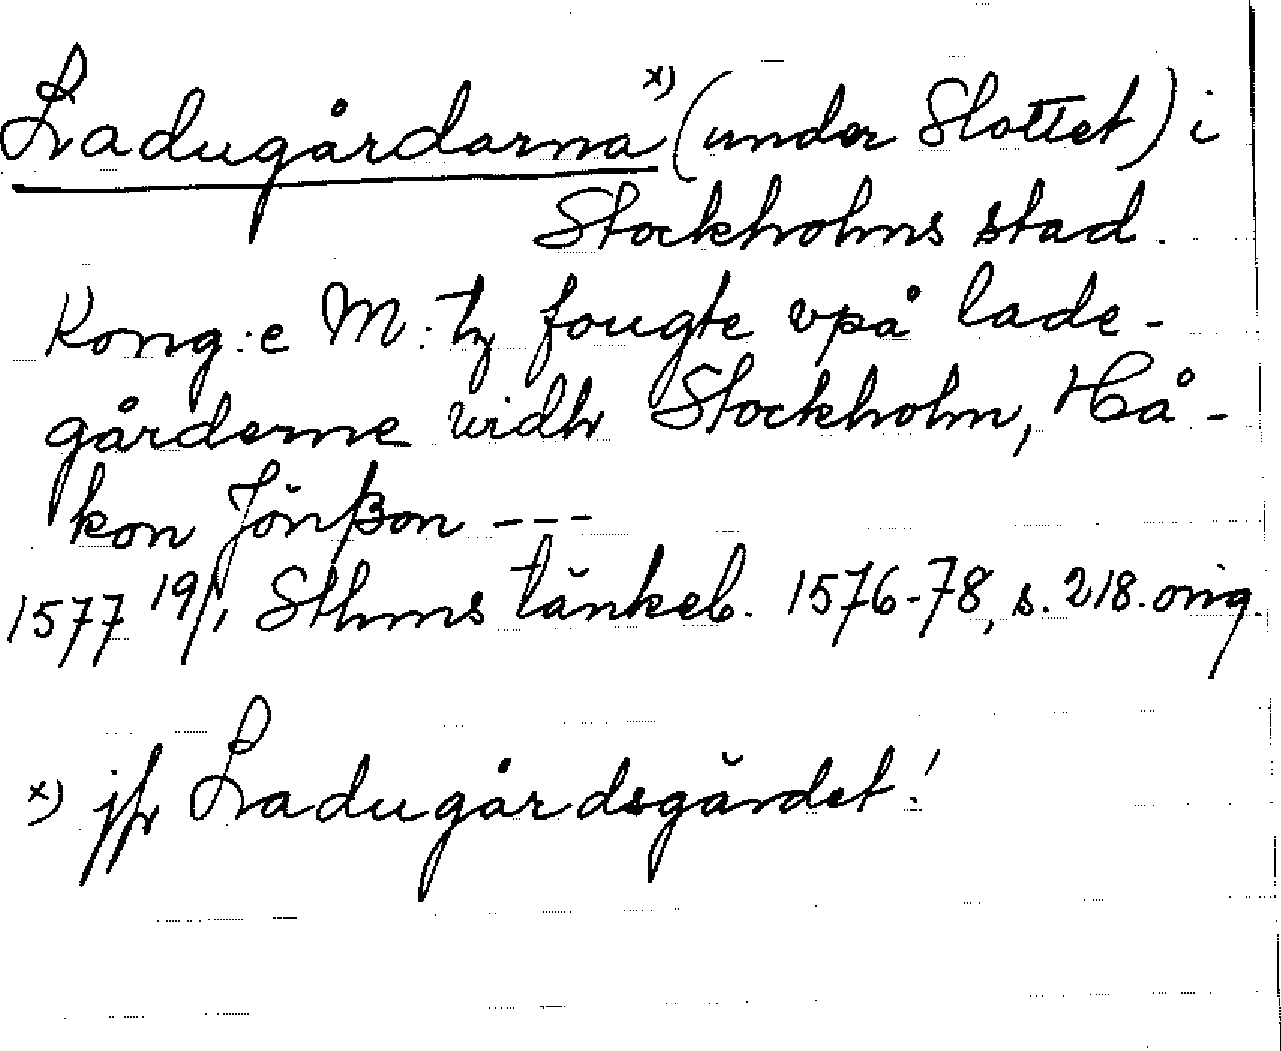 Ladugårdarna x) (under Slottet) i
Stockholms stad.
Kong:e M:tz fougte vpå lade-
gårderne vidh Stockholm, Hå-
kon Jönßon ---
1577 19/1, Sthms tänkeb. 1576-78, s. 218. orig.
x) jfr Ladugårdsgärdet!